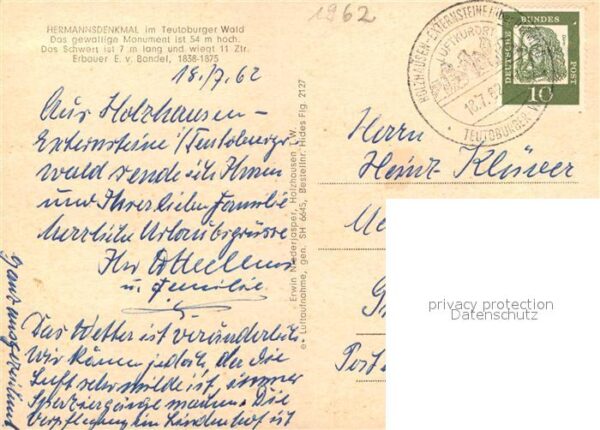 HERMANNSDENKMAL im Teutoburger Wald
Das gewaltige Monument ist 54 m hoch.
Das Schwert ist 7 m lang und wiegt 11 Ztr.
Erbauer E. v. Bandel, 1838-1875
1962
18./7.62
Aus Holzhausen-
Externsteine/Teutoburger
wald sende ich Ihnen
und Ihrer lieben Familie
herzliche Urlaubsgrüsse
Ihr
u. Familie.
Das Wetter ist veränderlich
Wir können jedoch, da die
Luft sehr milde ist, immer
Spaziergänge machen. Die
Verpflegung im Lindenhof ist
ganz ausgezeichnet
Erwin Niederjasper, Holzhausen i. W.
Luftaufnahme, gen. SH 6645, Bestellnr. Hides Flg. 2127
HOLZHAUSEN-EXTERNSTEINE
LUFTKURORT
18.7.62
TEUTOBURGER
DEUTSCHE BUNDES POST
10
Herrn
Heinz Klüver
Post
privacy protection
Datenschutz